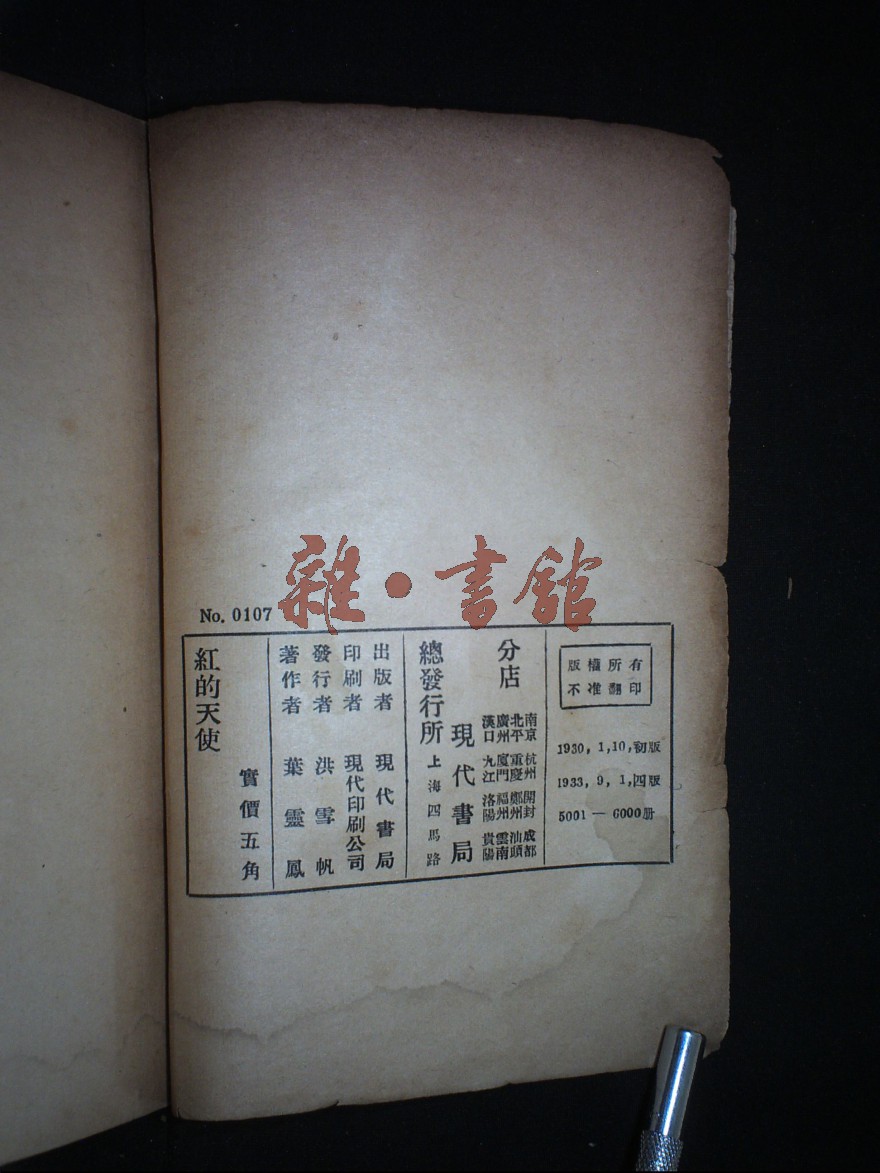 雜·書館
No. 0107
版權所有
不准翻印
1930, 1,10,初版
1933, 9, 1,四版
5001 — 6000册
分店
南京 杭州 開封 成都
北平 重慶 鄭州 汕頭
廣州 廈門 福州 雲南
漢口 九江 洛陽 貴陽
現代書局
總發行所 上海四馬路
出版者 現代書局
印刷者 現代印刷公司
發行者 洪雪帆
著作者 葉靈鳳
實價五角
紅的天使